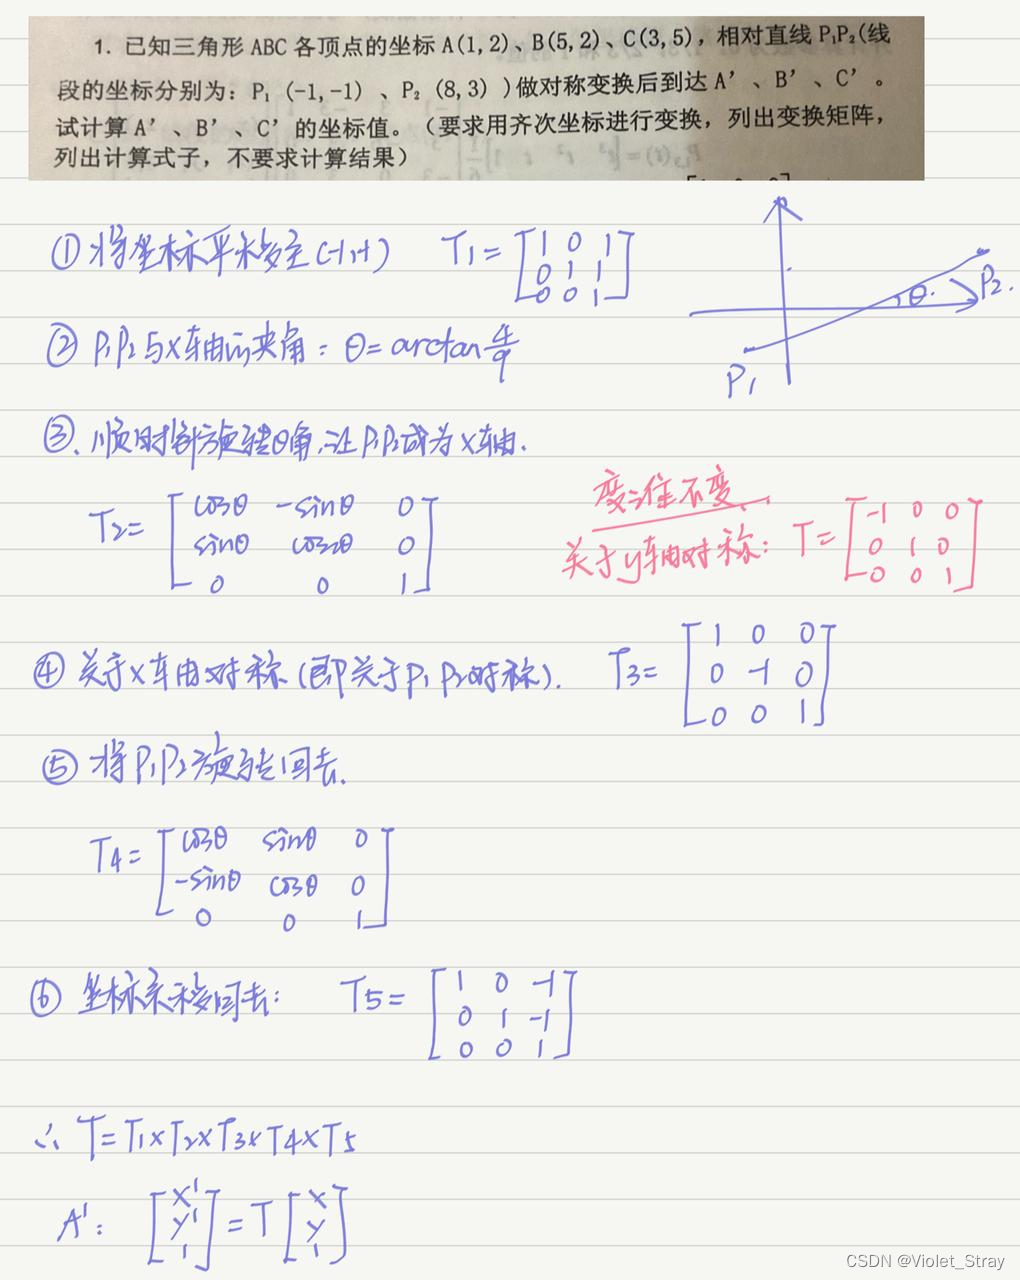 1. 已知三角形 ABC 各顶点的坐标 A(1,2)、B(5,2)、C(3,5)，相对直线 P₁P₂(线
段的坐标分别为：P₁ (-1,-1) 、P₂ (8,3) )做对称变换后到达 A’ 、B’ 、C’ 。
试计算 A’ 、B’ 、C’ 的坐标值。（要求用齐次坐标进行变换，列出变换矩阵，
列出计算式子，不要求计算结果）
① 将坐标平移至(-1,-1) T₁= [1 0 1
0 1 1
0 0 1]
θ. P₂.
P₁
② P₁P₂与x轴的夹角：θ=arctan 4/9
③. 顺时针旋转θ角,让P₁P₂成为x轴.
T₂= [cosθ -sinθ 0
sinθ cosθ 0
0 0 1]
变谁不变
关于y轴对称: T= [-1 0 0
0 1 0
0 0 1]
④ 关于x轴对称(即关于P₁P₂对称). T₃= [1 0 0
0 -1 0
0 0 1]
⑤ 将P₁P₂旋转回去.
T₄= [cosθ sinθ 0
-sinθ cosθ 0
0 0 1]
⑥ 坐标系移回去: T₅= [1 0 -1
0 1 -1
0 0 1]
∴ T=T₁×T₂×T₃×T₄×T₅
A': [x'
y'
1] = T [x
y
1]
CSDN @Violet_Stray